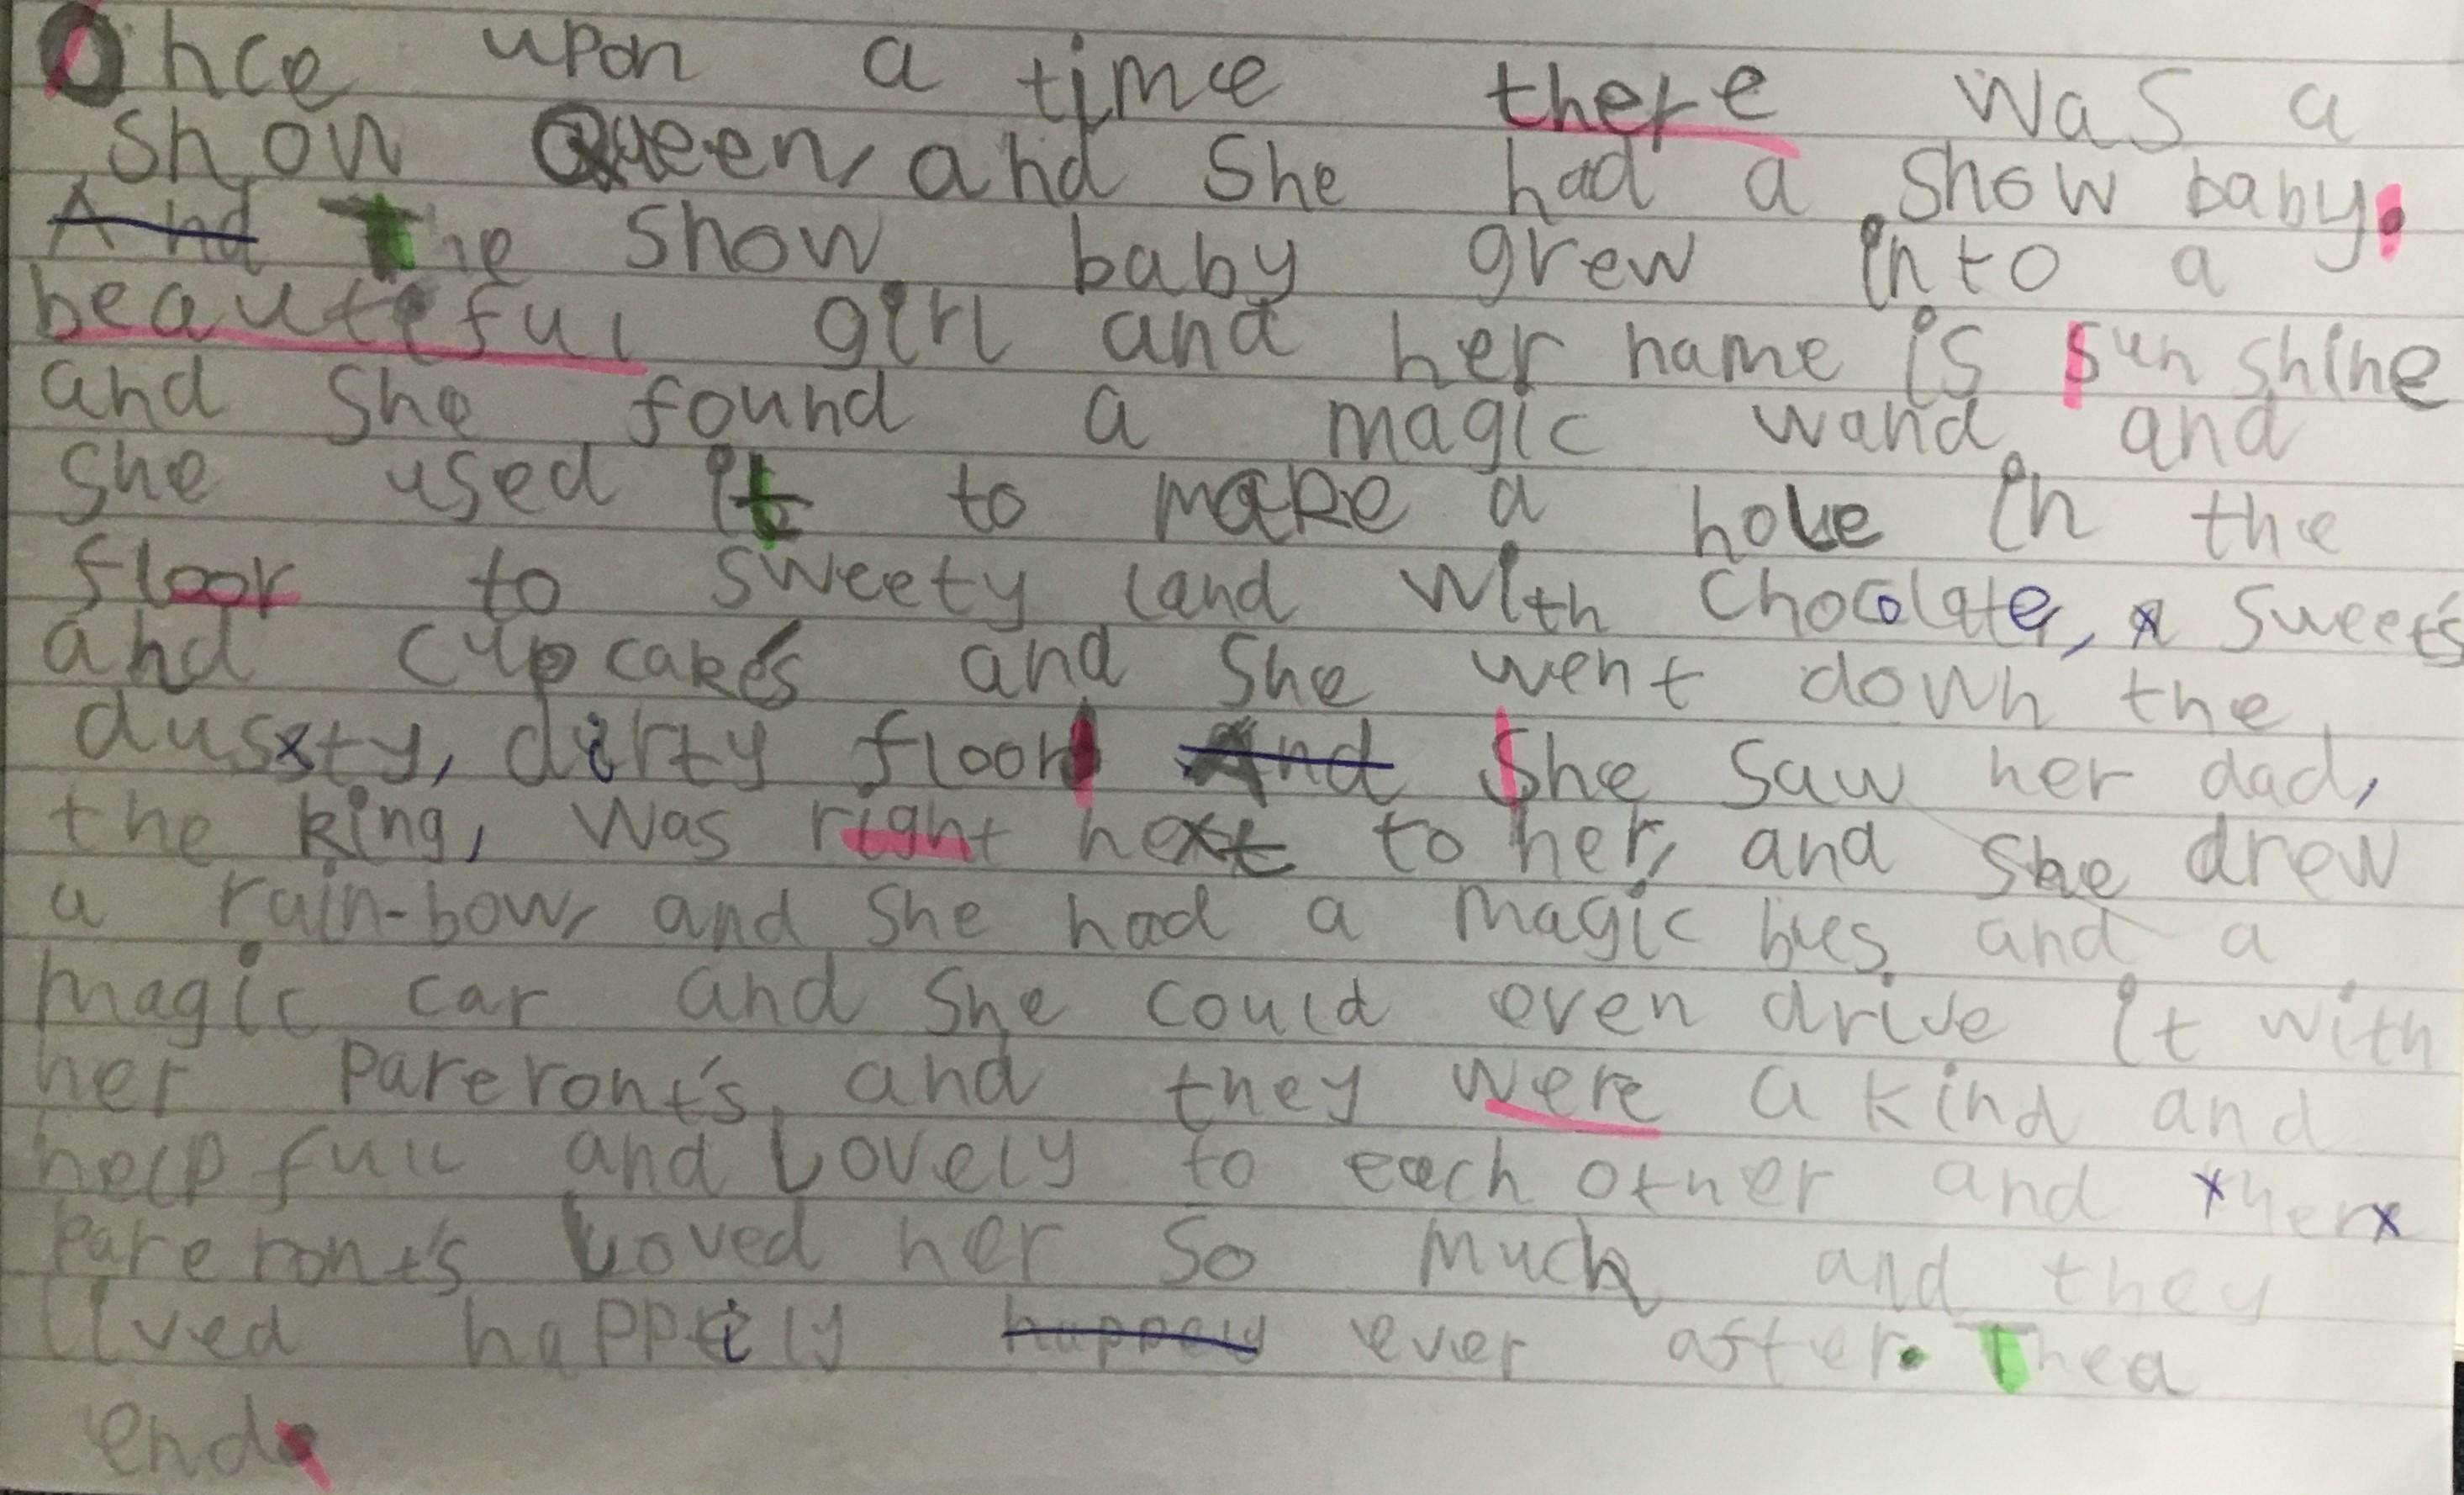 Once upon a time there was a
snow Queen, and She had a snow baby.
And The snow baby grew into a
beauteful girl and her name is sunshine
and she found a magic wand and
She used it to make a hole in the
floor to sweety land with Chocolate, sweet's
and cupcake's and She went down the
dussty, dirty floor. And She saw her dad,
the king, was right next to her, and she drew
a rain-bow, and she had a magic bus and a
magic car and she could even drive it with
her pareront's and they were a kind and
helpfull and Lovely to each other and her
pareront's Loved her so much and they
lived happily happely ever after. The
end.